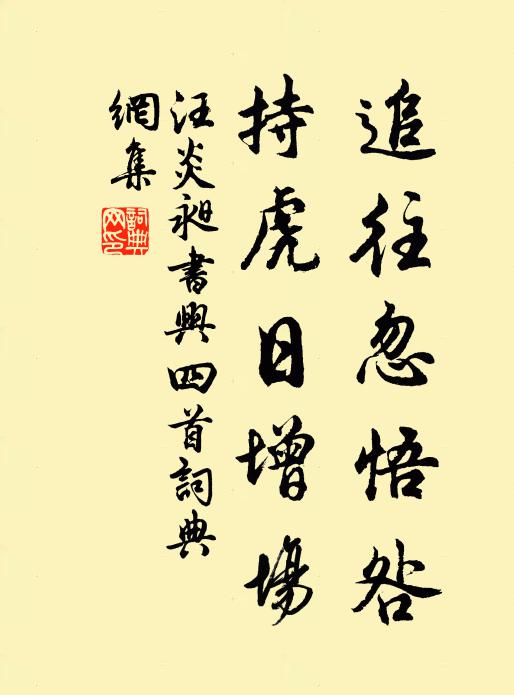 追往忽悟咎
持虎日增場
汪炎昶書興四首詞典
網集
詞典网印